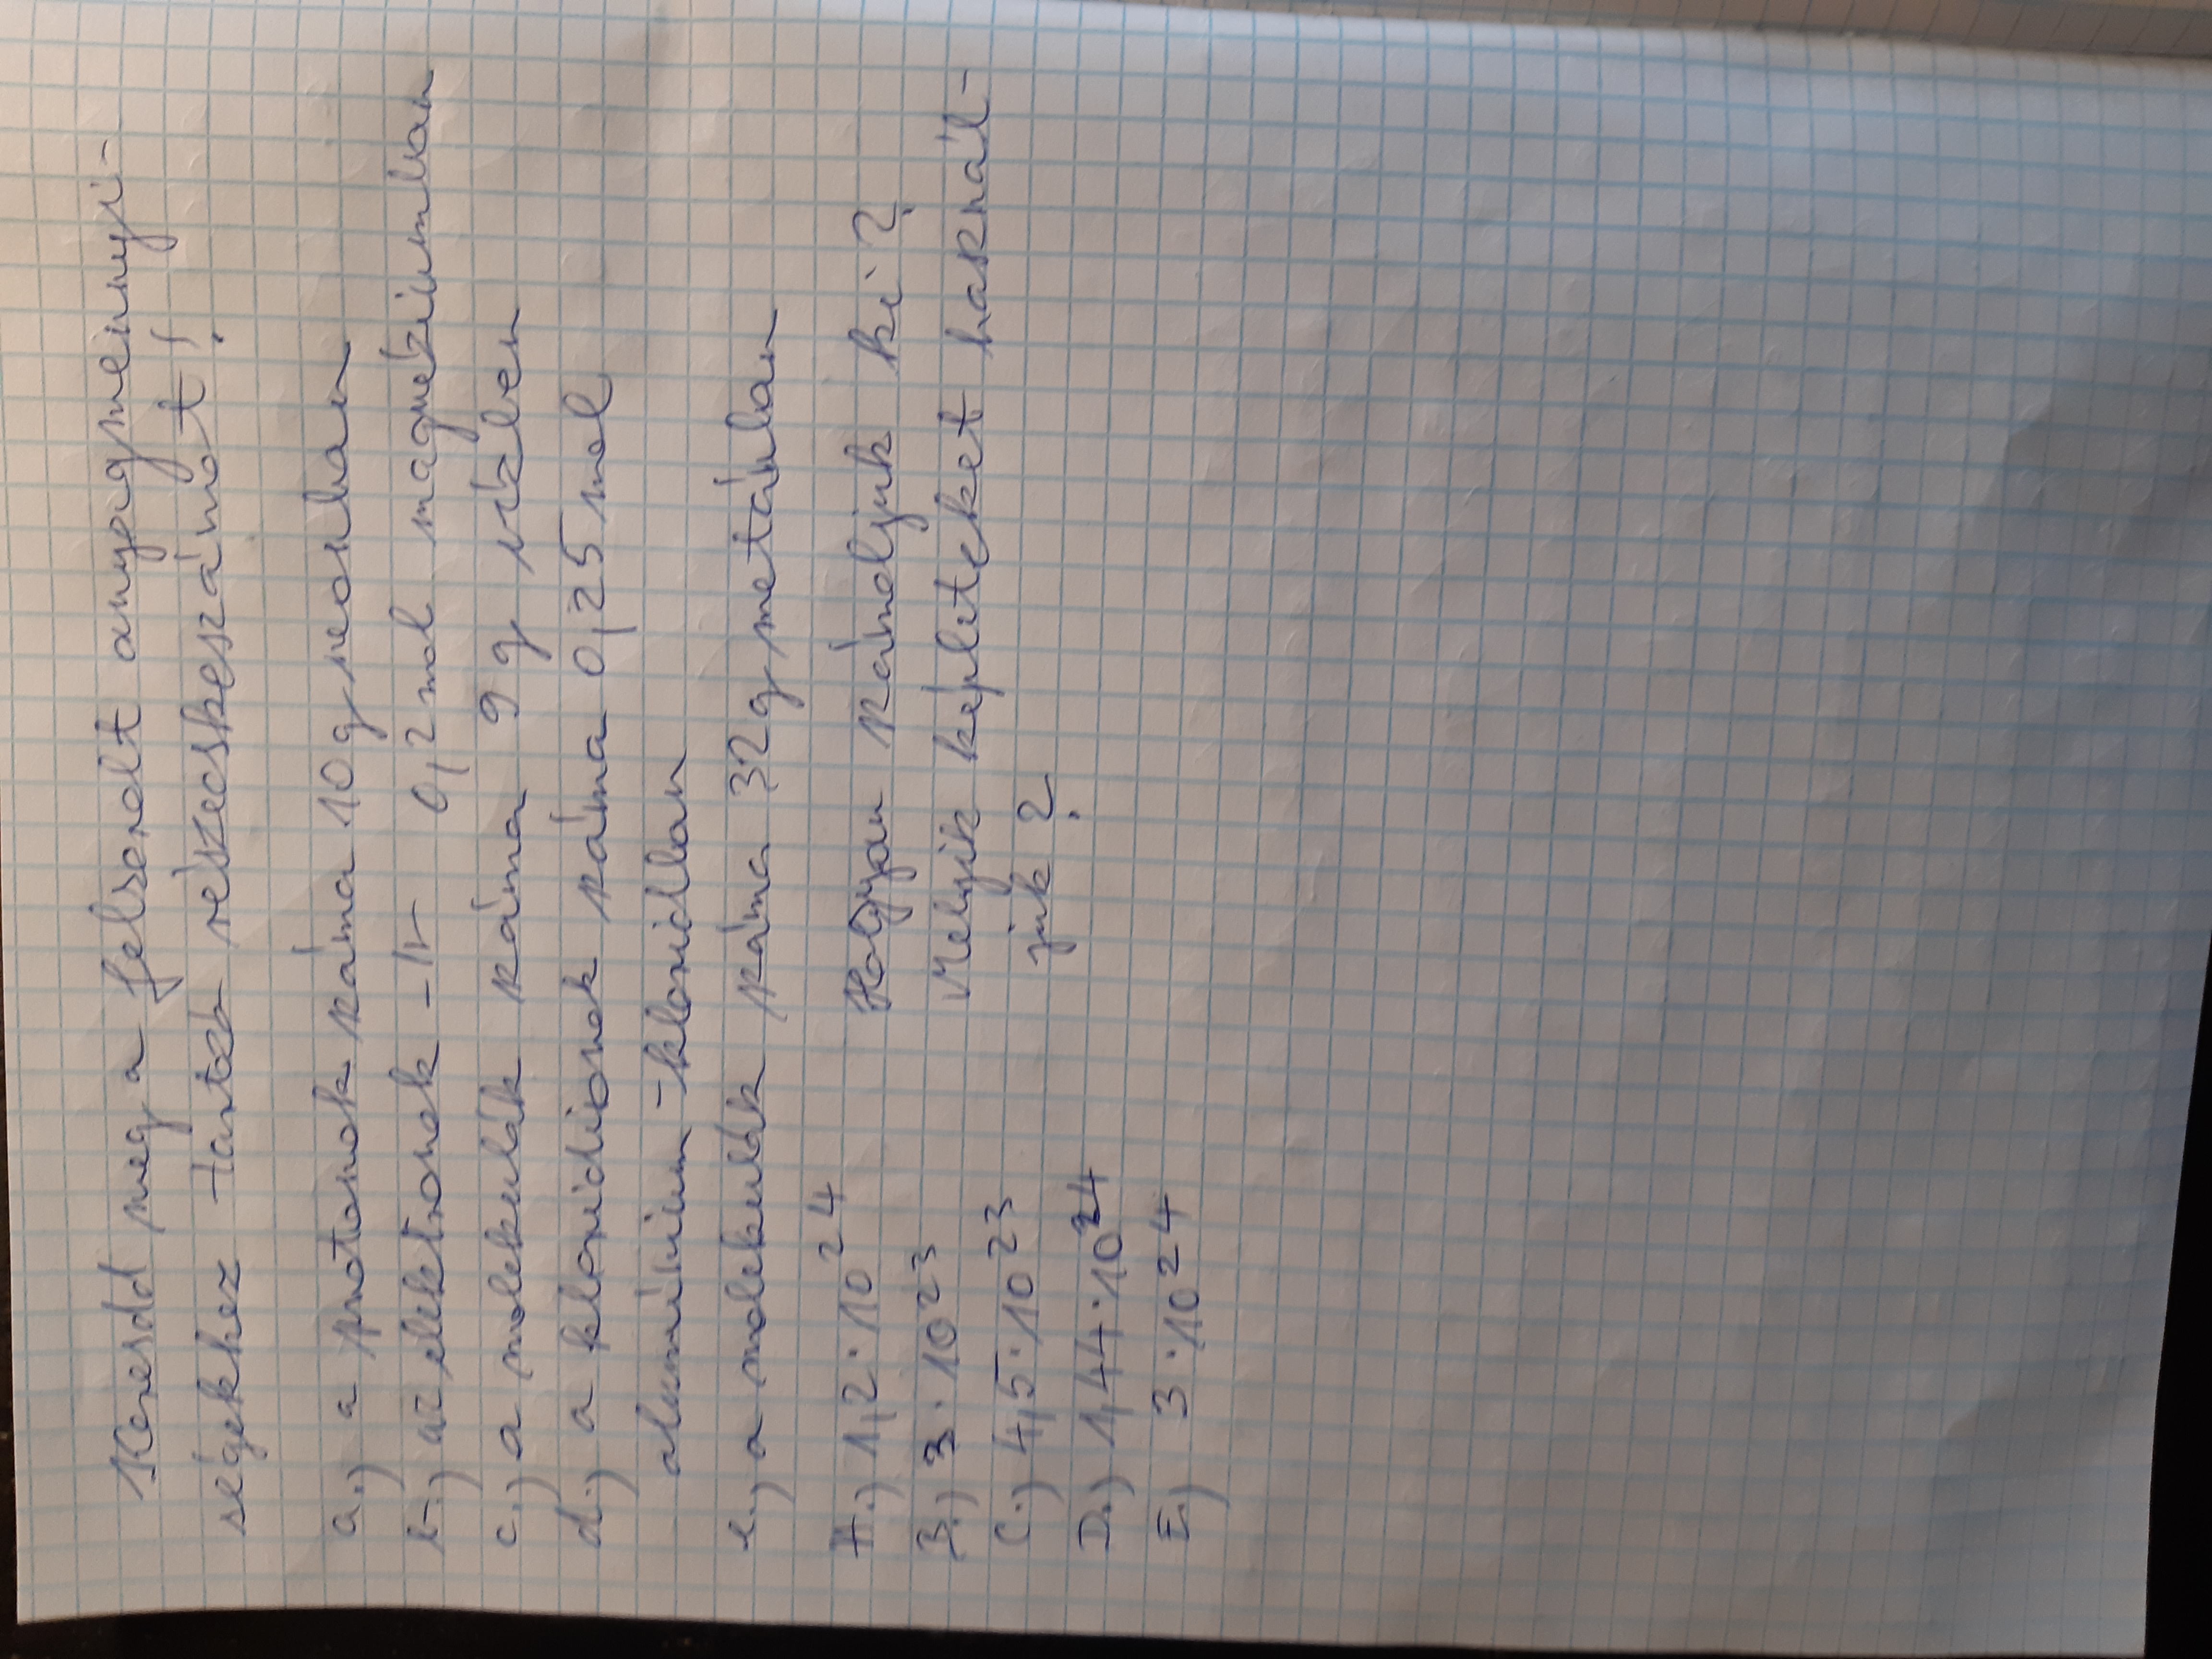 Keresdd meg a felsorolt anyagmennyi-
ségekhez tartozó részecskeszámot!
a.) a protonok száma 10 g neonban
b.) az elektronok -||- 0,2 mol magnéziumban
c.) a molekulák száma 9 g vízben
d.) a kloridionok száma 0,25 mol
alumínium-kloridban
e.) a molekulák száma 32 g metánban
A.) 1,2·10²⁴
B.) 3·10²³
C.) 4,5·10²³
D.) 1,44·10²⁴
E.) 3·10²⁴
Hogyan számoljuk ki?
Melyik képleteket használ-
juk?